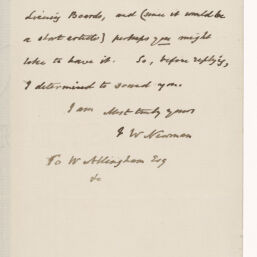 Licensing Boards, and (since it would be
a short article) perhaps you might
like to have it. So, before replying,
I determined to sound you.
I am Most truly yours
F W Newman
To W Allingham Esq
&c